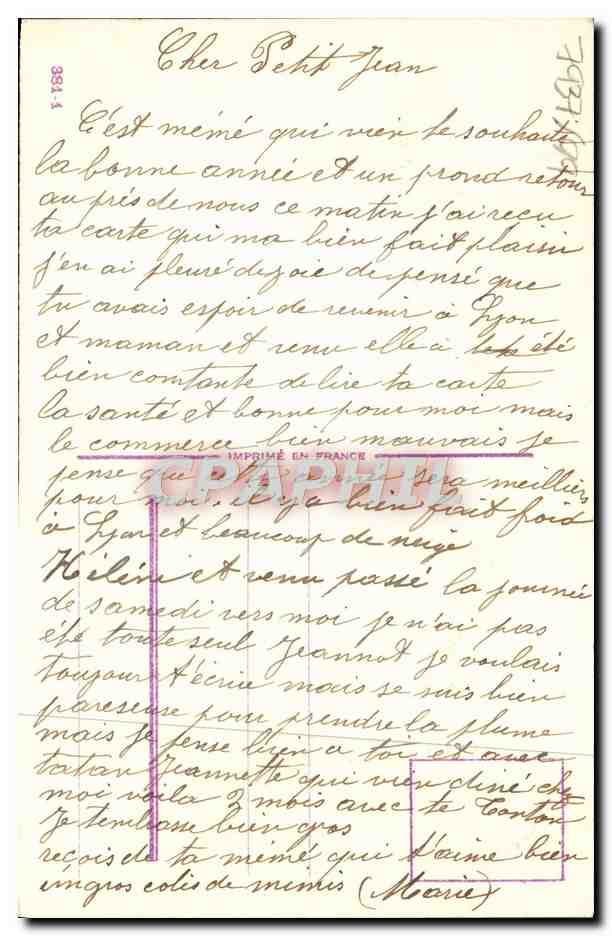 Cher Petit Jean
381-1
C'ést mémé qui vien te souhaité
la bonne année et un prond retour
au prés de nous ce matin j'ai reçu
ta carte qui ma bien fait plaisir
j'en ai pleuré de joie de pensé que
tu avais espoir de revenir à Lyon
et maman et venu elle à été
bien contante de lire ta carte
la santé et bonne pour moi mais
le commerce bien mauvais je
IMPRIMÉ EN FRANCE
CPAPHIL
pense que cette année sera meilliers
pour moi. il y a bien fait froid
à Lyon et beaucoup de neige
Héléne et venu passé la journée
de samedi vers moi je n'ai pas
été toute seul Jeannot je voulais
toujour t'écrire mais je suis bien
pareseuse pour prendre la plume
mais je pense bien a toi et avec
tatan Jeannette qui vien diné chez
moi voila 2 mois avec te Tonton
Je tembasse bien gros
reçois de ta mémé qui t'aime bien
un gros colis de mimis (Marie)